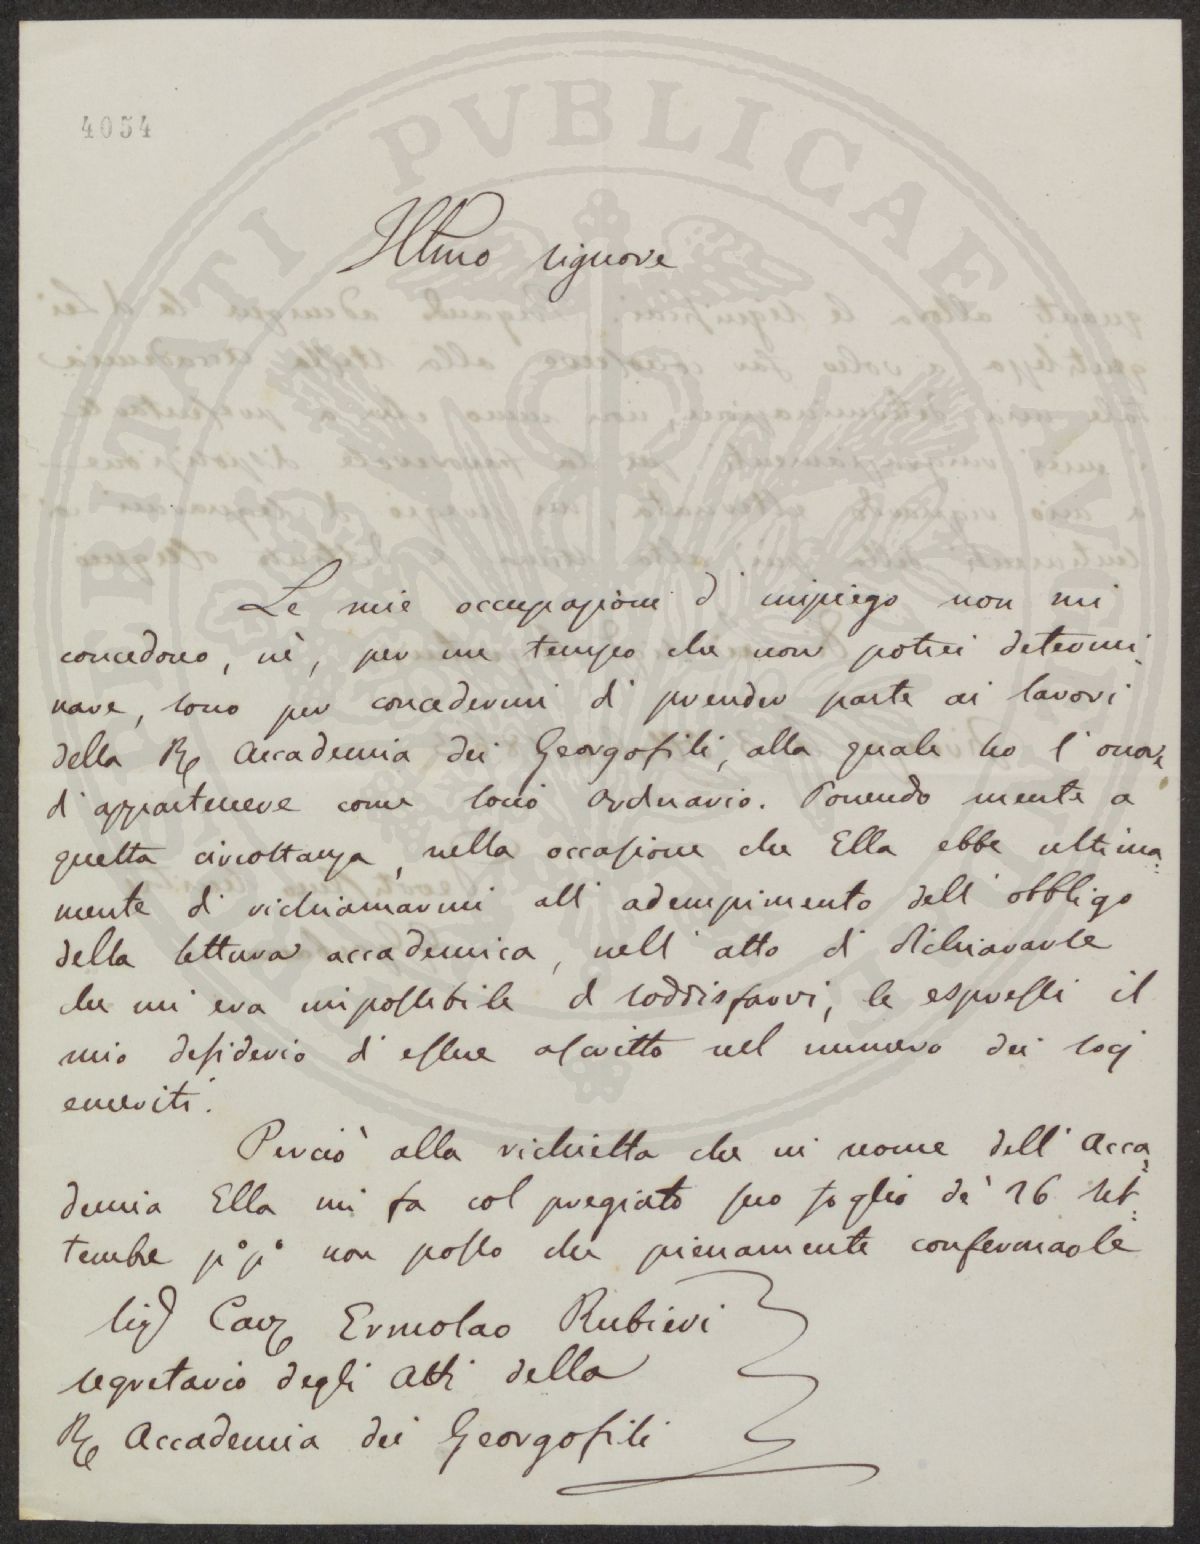 4054
PROSPERITATI PVBLICAE AVGENDAE
Illmo signore
Le mie occupazioni d' impiego non mi
concedono, nè, per un tempo che non potrei determi-
nare, sono per concedermi di prender parte ai lavori
della R. Accademia dei Georgofili, alla quale ho l' onore
d' appartenere come socio ordinario. Ponendo mente a
questa circostanza, nella occasione che Ella ebbe ultima-
mente di richiamarmi all' adempimento dell' obbligo
della lettura accademica, nell' atto di dichiararle
che mi era impossibile di soddisfarvi, le espressi il
mio desiderio d' essere ascritto nel numero dei socj
emeriti.
Perciò alla richiesta che in nome dell' Acca-
demia Ella mi fa col pregiato suo foglio de' 26 set-
tembre p° p° non posso che pienamente confermarle
Sig Cav Ermolao Rubieri
segretario degli Atti della
R. Accademia dei Georgofili